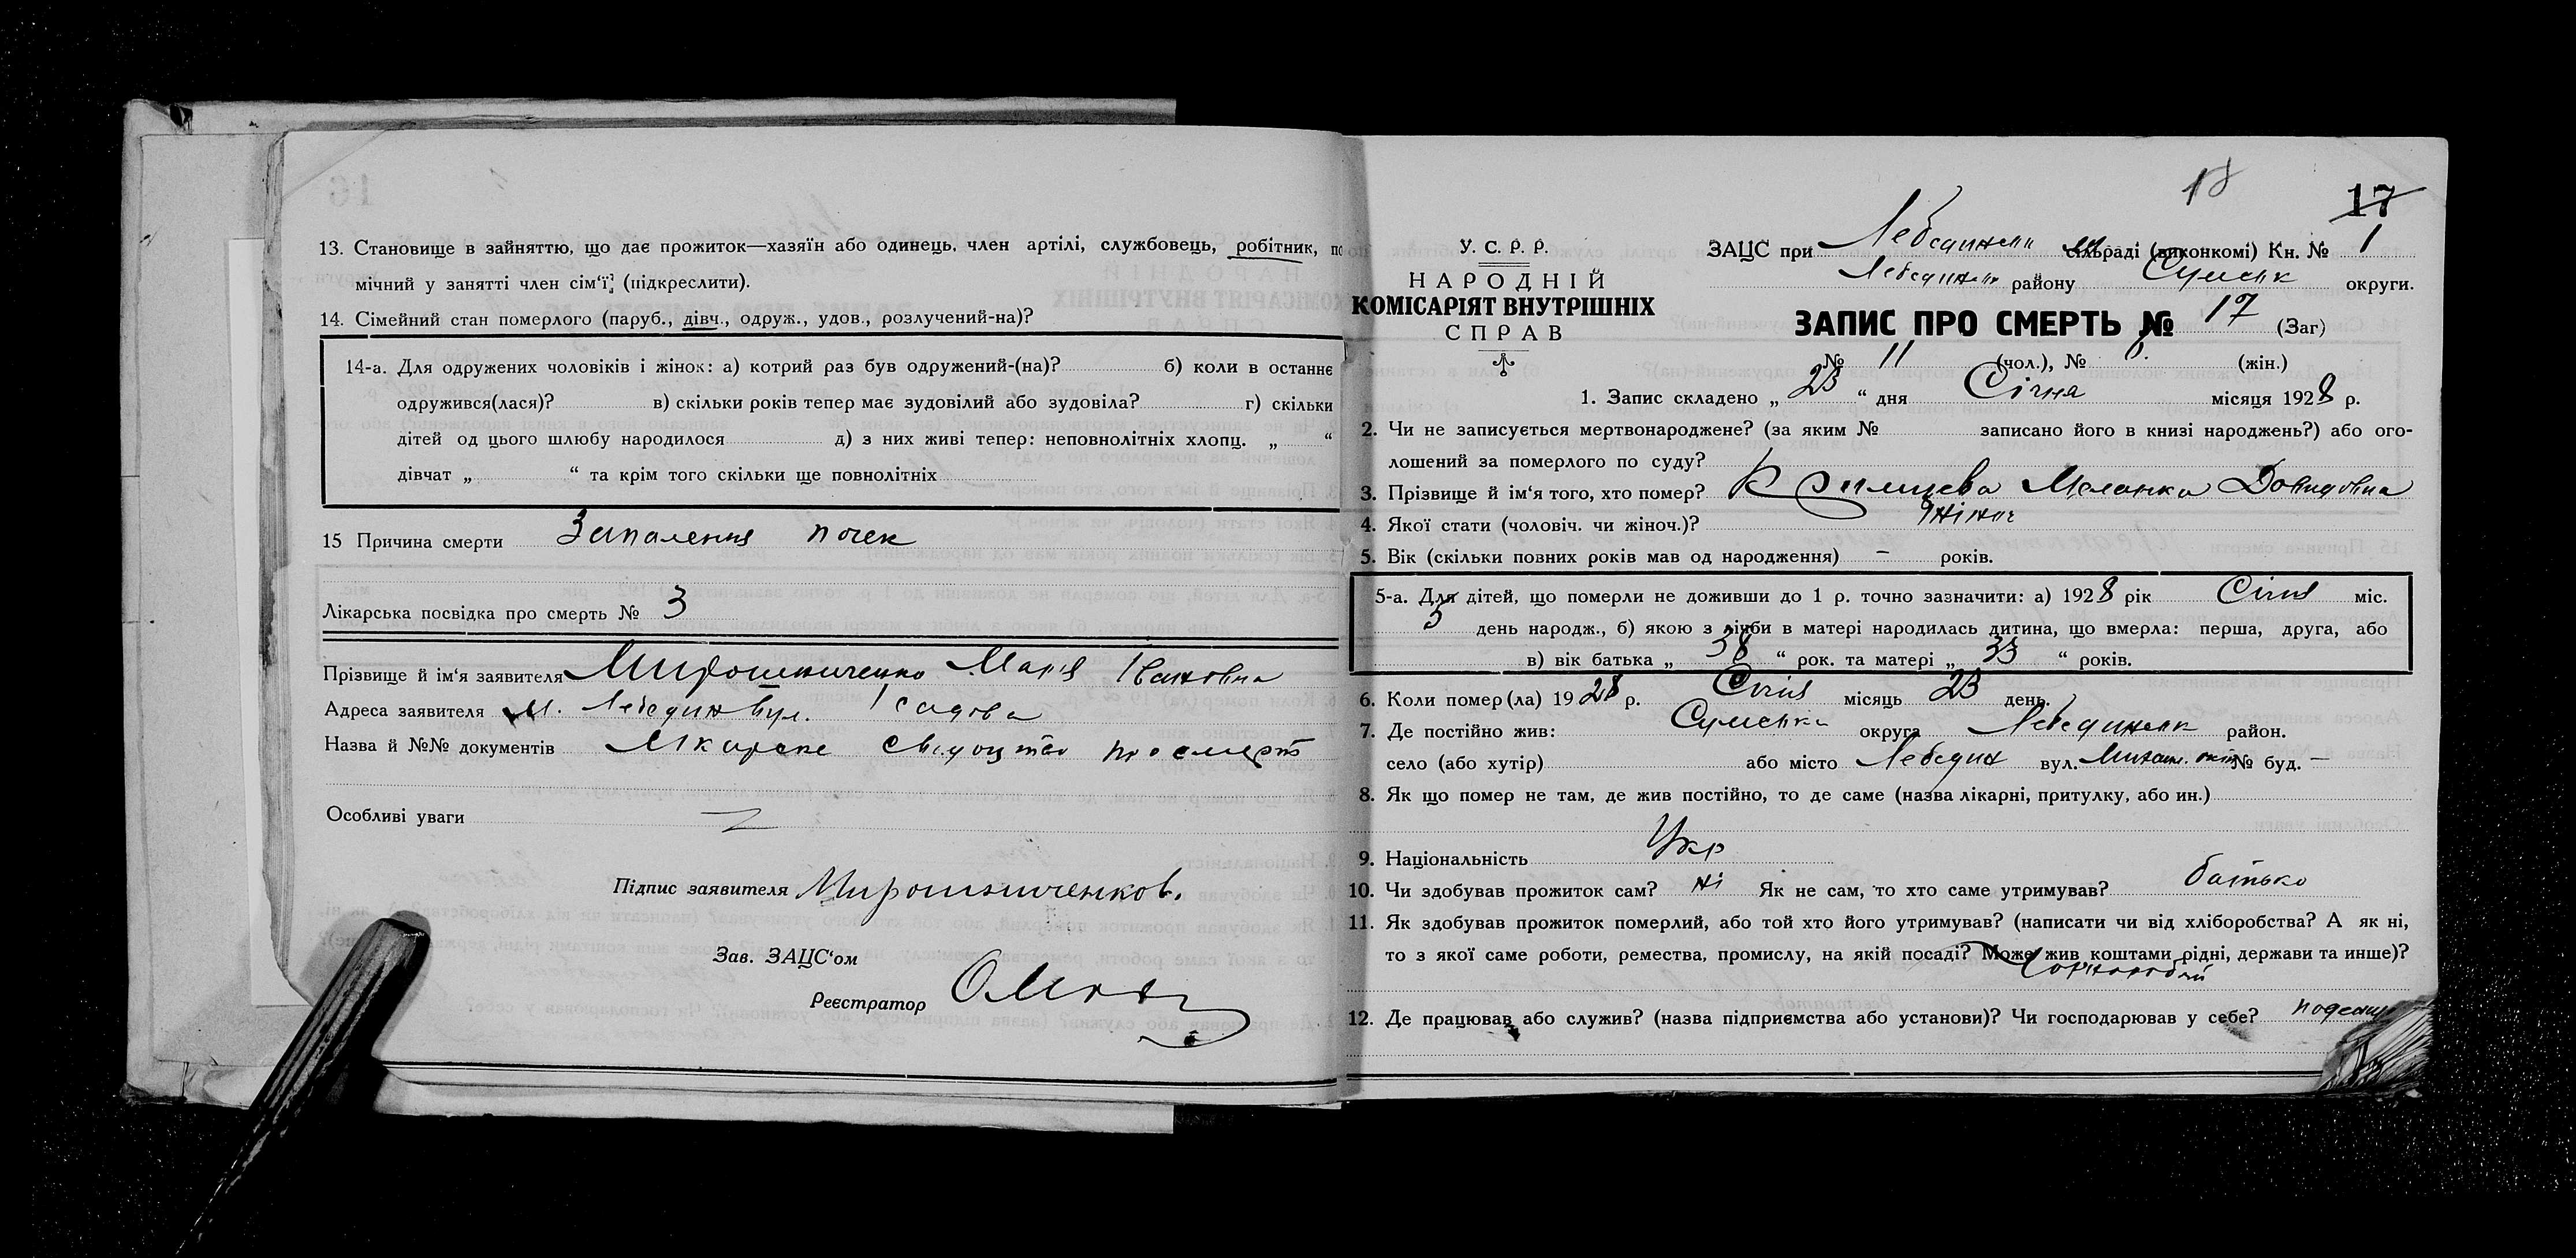 13. Становище в зайняттю, що дає прожиток—хазяїн або одинець, член артілі, службовець, робітник, по
мічний у занятті член сім‘ї; (підкреслити).
14. Сімейний стан померлого (паруб., дівч., одруж., удов., розлучений-на)?
14-а. Для одружених чоловіків і жінок: а) котрий раз був одружений-(на)? б) коли в останнє
одружився(лася)? в) скільки років тепер має зудовілий або зудовіла? г) скільки
дітей од цього шлюбу народилося д) з них живі тепер: неповнолітніх хлопц. „ “
дівчат „ “ та крім того скільки ще повнолітніх
15 Причина смерти Запалення почек
Лікарська посвідка про смерть № 3
Прізвище й ім‘я заявителя Мирошниченко Марія Івановна
Адреса заявителя м. Лебедин вул. Садова
Назва й №№ документів Лікарске свідоцтво по смерт
Особливі уваги
Підпис заявителя Мирошниченков.
Зав. ЗАЦС‘ом
Реєстратор
18
17
У. С. Р. Р.
НАРОДНІЙ
КОМІСАРІЯТ ВНУТРІШНІХ
СПРАВ
ЗАЦС при Лебединськ сільраді (виконкомі) Кн. № 1
Лебединськ району Сумськ округи.
ЗАПИС ПРО СМЕРТЬ № 17 (Заг)
№ 11 (чол.), № 6. (жін.)
1. Запис складено „ 23 “ дня Січня місяця 1928 р.
2. Чи не записується мертвонароджене? (за яким № записано його в книзі народжень?) або ого-
лошений за померлого по суду?
3. Прізвище й ім‘я того, хто помер? Меланка Довидовна
4. Якої стати (чоловіч. чи жіноч.)? Жіноч
5. Вік (скільки повних років мав од народження) – років.
5-а. Для дітей, що померли не доживши до 1 р. точно зазначити: а) 1928 рік Січня міс.
5 день народж., б) якою з лічби в матері народилась дитина, що вмерла: перша, друга, або
в) вік батька „ 38 “ рок. та матері „ 33 “ років.
6. Коли помер(ла) 1928 р. Січня місяць 23 день.
7. Де постійно жив: Сумська округа Лебединськ район.
село (або хутір) або місто Лебедин вул. № буд. –
8. Як що помер не там, де жив постійно, то де саме (назва лікарні, притулку, або ин.)
9. Національність Укр
10. Чи здобував прожиток сам? ні Як не сам, то хто саме утримував? батько
11. Як здобував прожиток померлий, або той хто його утримував? (написати чи від хліборобства? А як ні,
то з якої саме роботи, ремества, промислу, на якій посаді? Може жив коштами рідні, держави та инше)?
12. Де працював або служив? (назва підприємства або установи)? Чи господарював у себе?